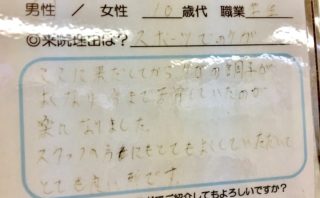 男性 / 女性 10 歳代 職業 学生
◎来院理由は? スポーツでのケガ
ここに来だしてから ケガの調子が
よくなり 今まで苦労していたのが
楽に なりました。
スタッフの方々にもとてもよくしていただいて
とても です。
ご紹介してもよろしいですか?